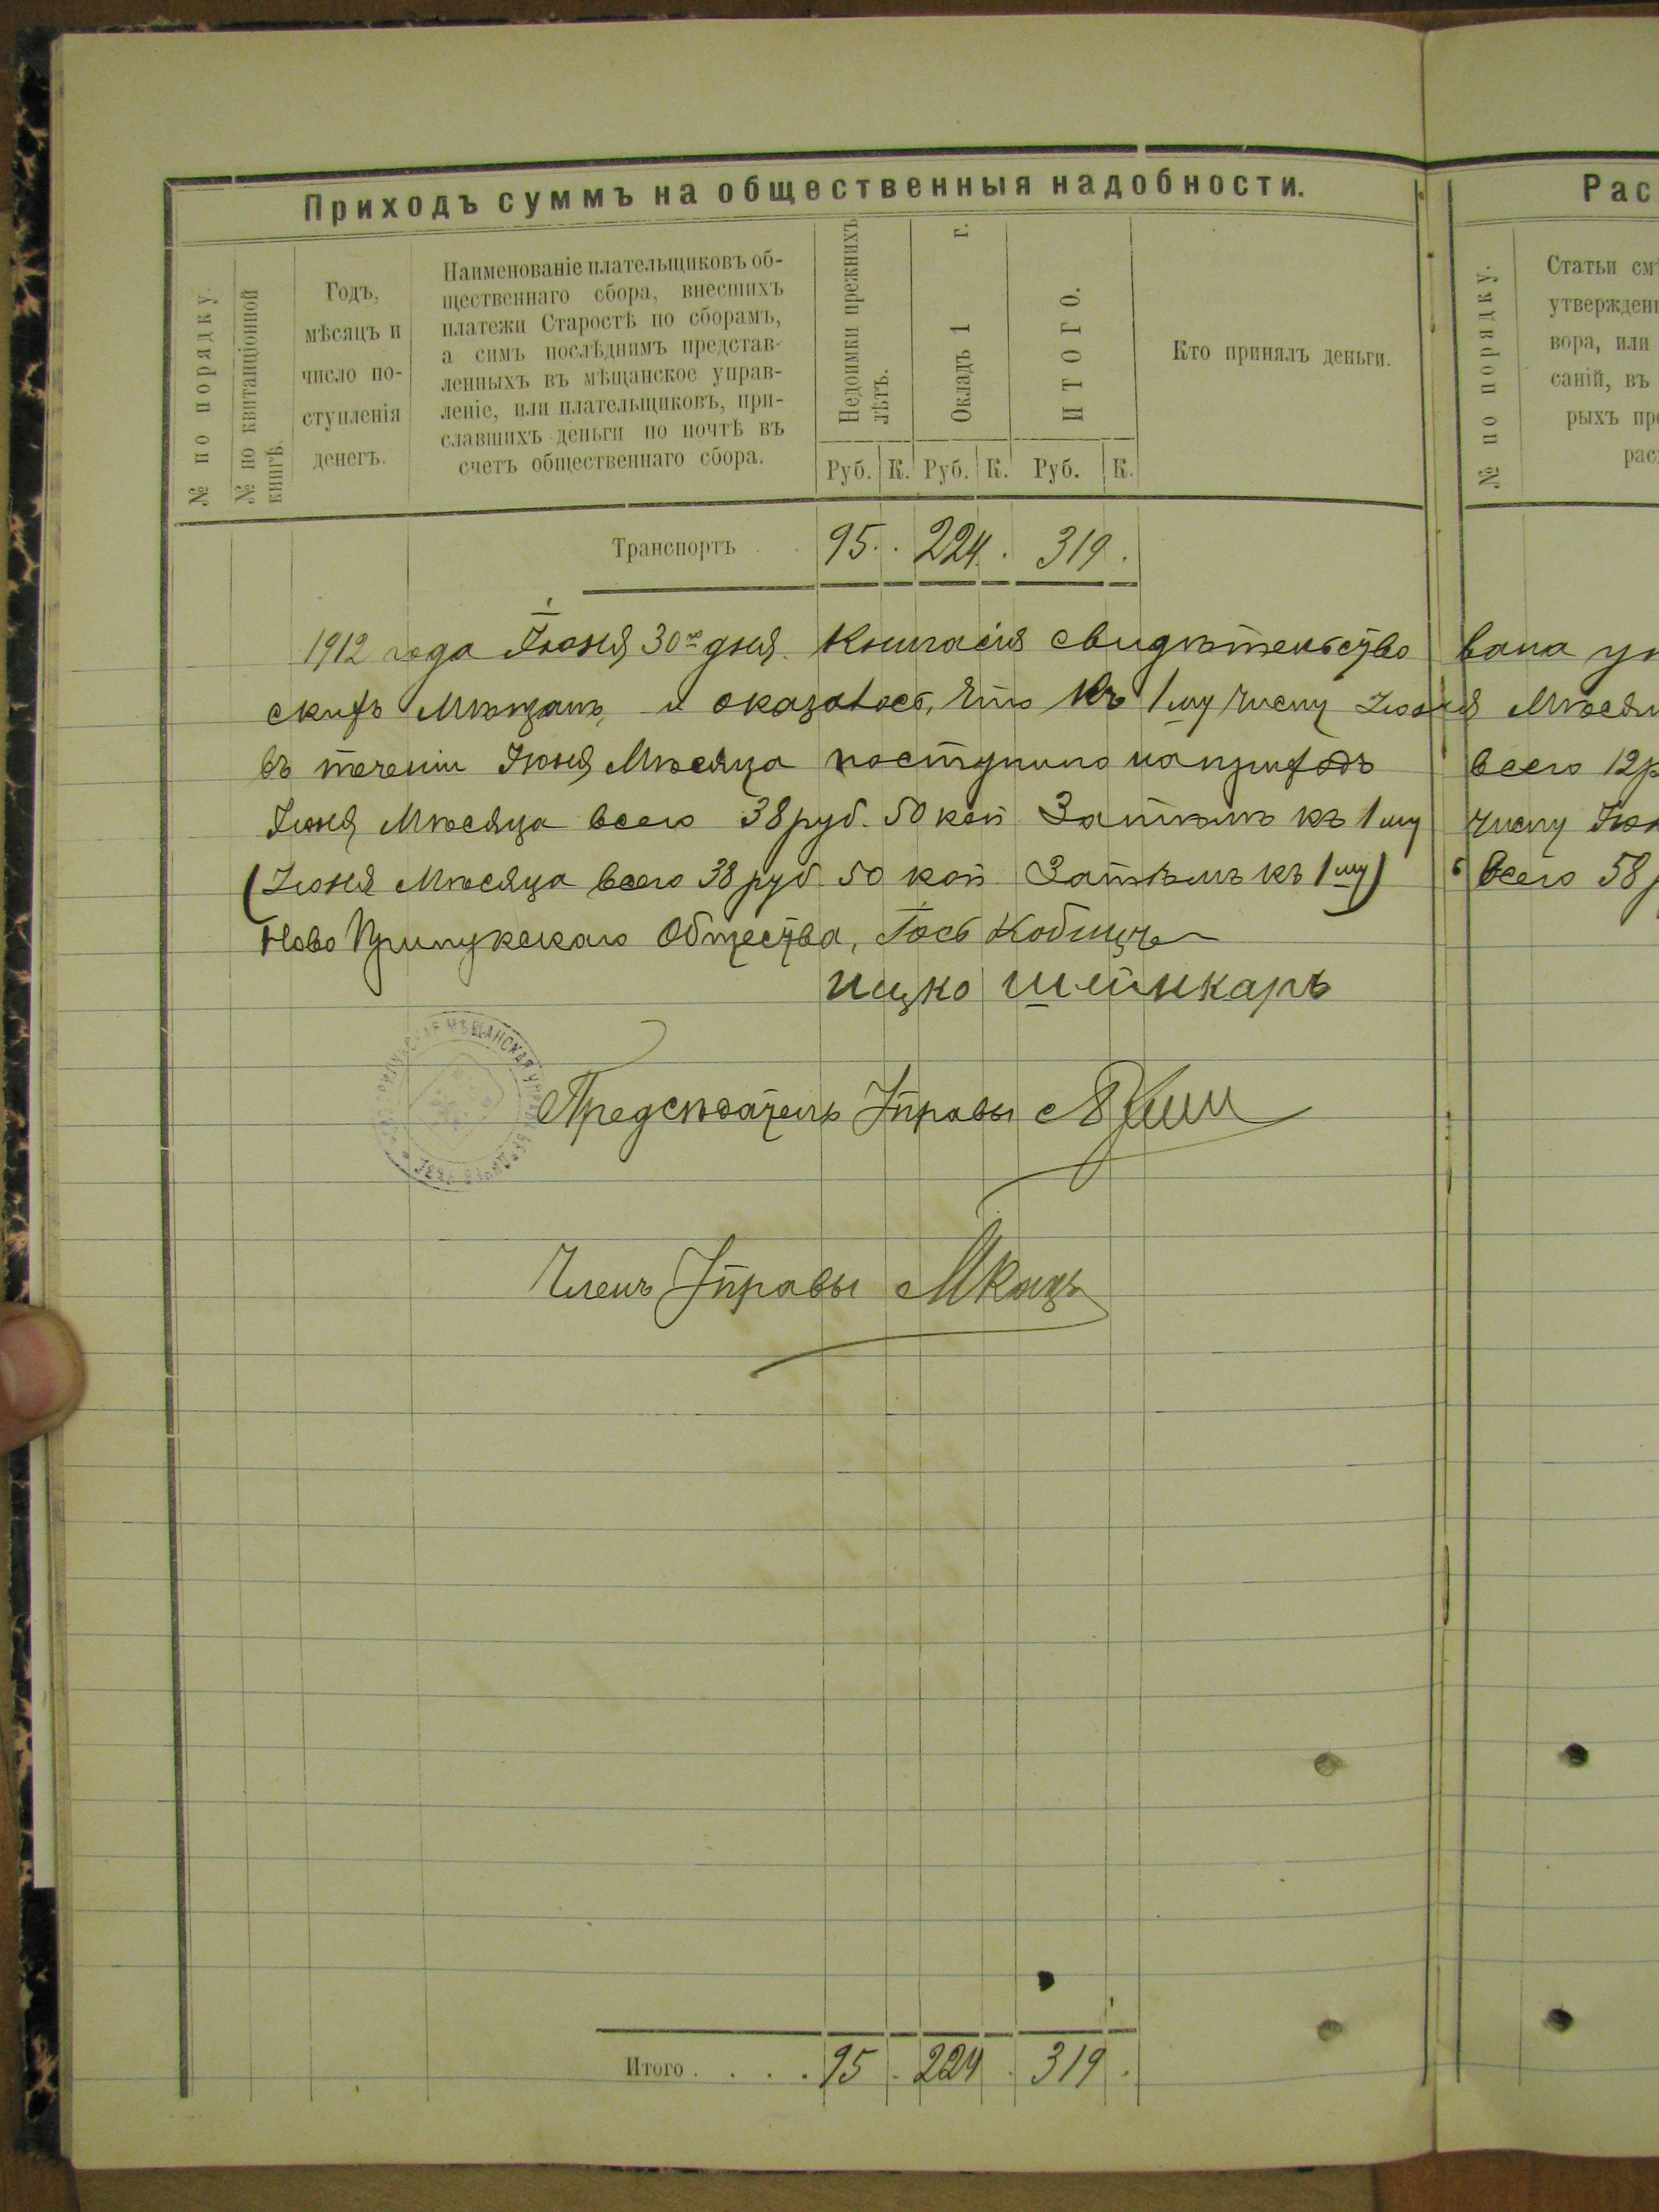 Приходъ суммъ на общественныя надобности.
№ по порядку.
№ по квитанціонной книгѣ.
Годъ,
мѣсяцъ и
число по-
ступленія
денегъ.
Наименованіе плательщиковъ об-
щественнаго сбора, внесшихъ
платежи Старостѣ по сборамъ,
а симъ послѣднимъ представ-
ленныхъ въ мѣщанское управ-
леніе, или плательщиковъ, при-
славшихъ деньги по почтѣ въ
счетъ общественнаго сбора.
Недоимки прежнихъ лѣтъ.
Окладъ 1 г.
ИТОГО.
Руб. К. Руб. К. Руб. К.
Кто принялъ деньги.
Транспортъ . . 95. . 224. . 319 .
1912 года Іюня 30го дня. Книга сія свидѣтельство
скихъ Мѣщанъ, и оказалось, что Къ 1му числу Іюня
въ теченіи Іюня Мѣсяца поступило на приходъ
Іюня Мѣсяца всего 38 руб. 50 коп Затѣмъ къ 1му
(Іюня Мѣсяца всего 38 руб. 50 коп Затѣмъ къ 1му)
Ново Прилукскаго Общества, Іось
Ицко Шейнкарь
Предсѣдатель Управы
Членъ Управы МКацъ
Итого . . . . 95 . 224 . 319 .
Рас
№ по порядку.
Статьи см
утвержден
вора, или
саній, въ
рыхъ пр
рас
вана
Мѣся
всего 12
числу
всего 58